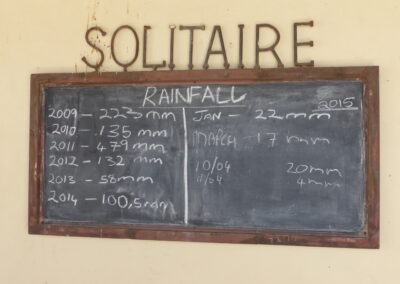 SOLITAIRE
RAINFALL
2009 - 223mm
2010 - 135 mm
2011 - 479 mm
2012 - 132 mm
2013 - 58mm
2014 - 100,5mm
2015
JAN - 22mm
MARCH - 17 mm
10/04 20mm
11/04 4mm